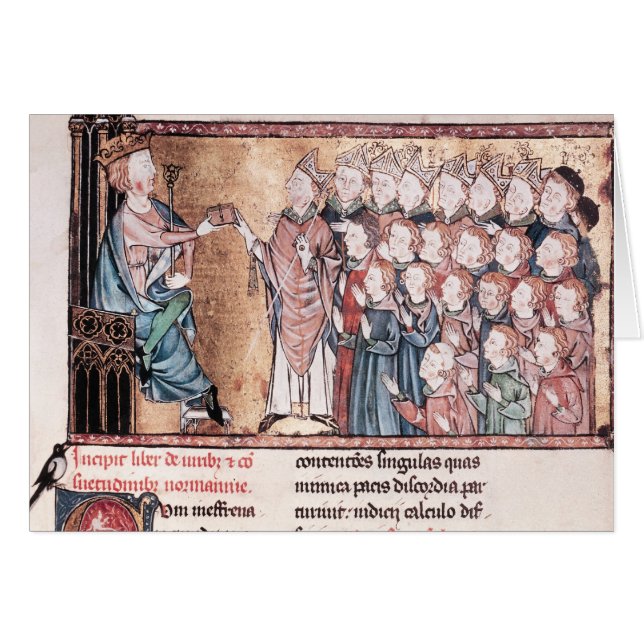 Incipit liber de iuribꝫ ⁊ cō
suetudinibꝫ normannie.
Cum ineffrena
contencōes singulas quas
inimica pacis discordia par
turiunt. iudicij calculo dif